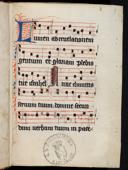 Lumen ad revelationem
gentium et gloriam plebis
tue israhel Nunc dimittis
servum tuum domine secun
dum verbum tuum in pace